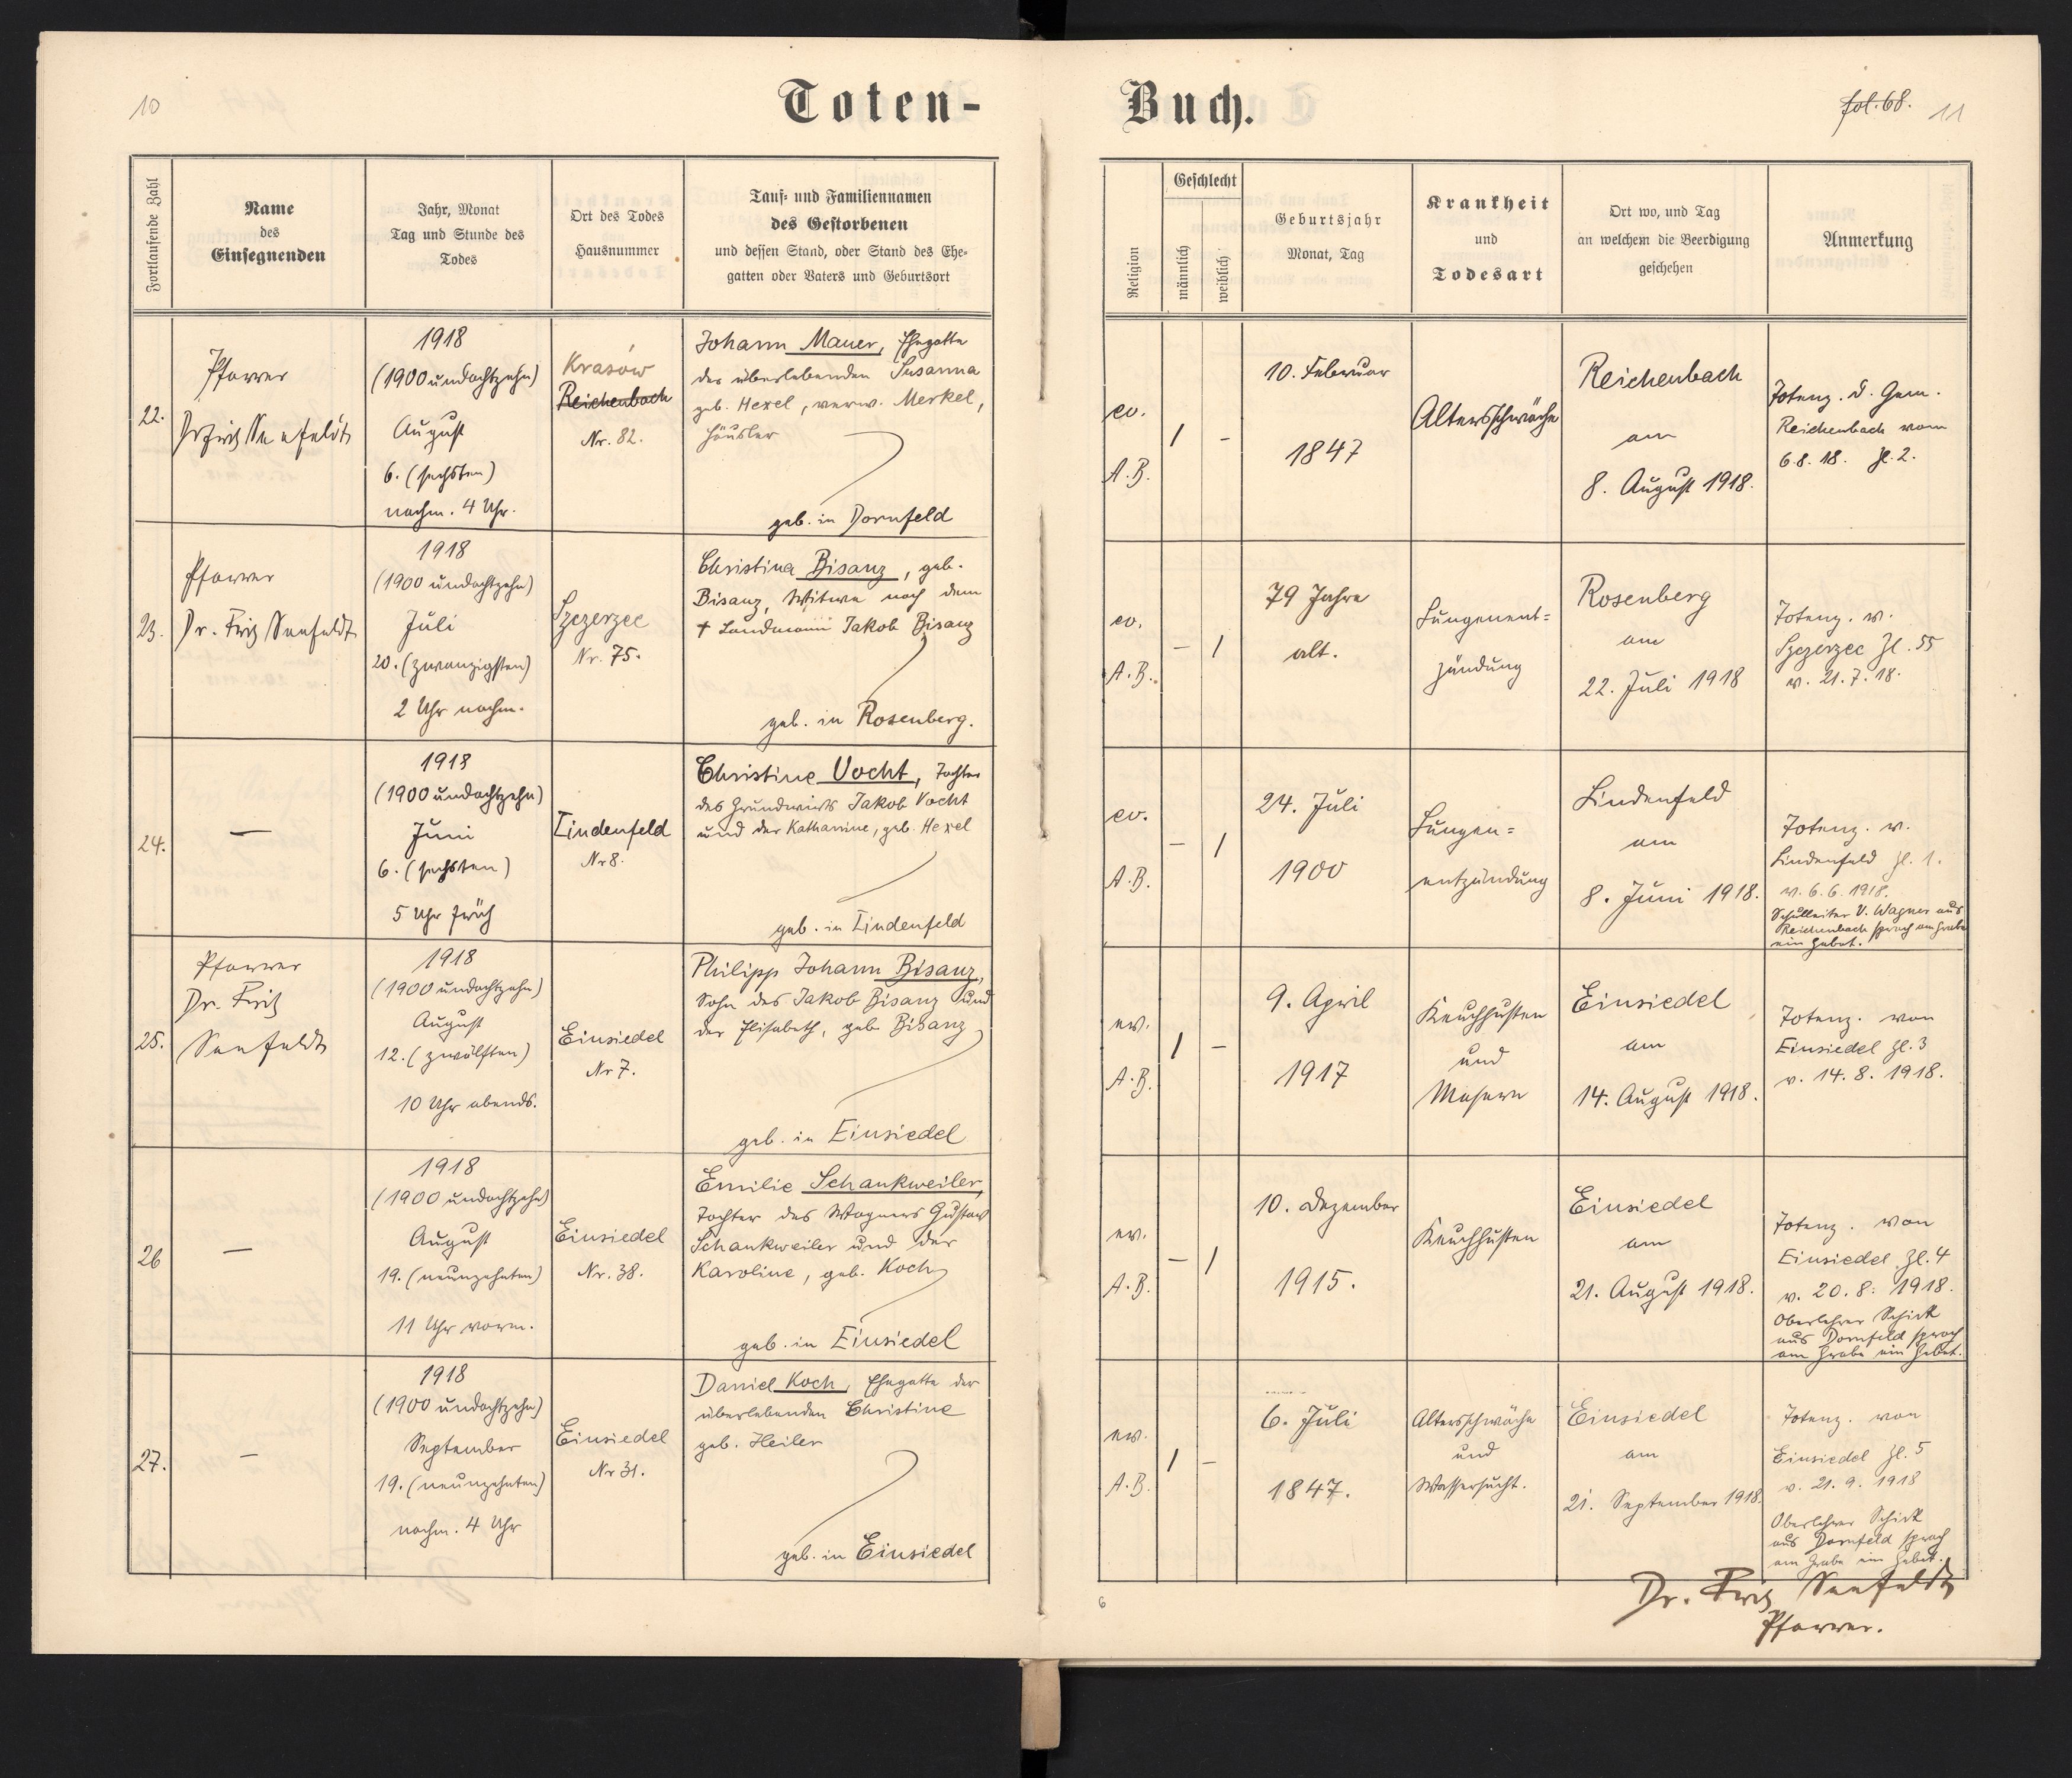 10
Toten-
Buch.
fol. 68.
11
Fortlaufende Zahl
Name
des
Einsegnenden
Jahr, Monat
Tag und Stunde des
Todes
Ort des Todes
Hausnummer
Tauf- und Familiennamen
des Gestorbenen
und dessen Stand, oder Stand des Ehe-
gatten oder Vaters und Geburtsort
Religion
Geschlecht
männlich
weiblich
Geburtsjahr
Monat, Tag
Krankheit
und
Todesart
Ort wo, und Tag
an welchem die Beerdigung
geschehen
Anmerkung
22.
Pfarrer
Dr Fritz Seefeldt
1918
(1900 undachtzehn)
August
6. (sechsten)
nachm. 4 Uhr.
Krasów
Reichenbach
Nr. 82.
Johann Mauer, Ehegatte
der überlebenden Susanna
geb. Hexel, verw. Merkel,
Häusler
geb. in Dornfeld
ev.
A.B.
/
-
10. Februar
1847
Altersschwäche
Reichenbach
am
8. August 1918.
Totenz. d. Gem.
Reichenbach vom
6.8.18. Zl. 2.
23.
Pfarrer
Dr. Fritz Seefeldt
1918
(1900 undachtzehn)
Juli
20. (zwanzigsten)
2 Uhr nachm.
Szczerzec
Nr. 75.
Christina Bisanz, geb.
Bisanz, Witwe nach dem
† Landmann Jakob Bisanz
geb. in Rosenberg.
ev.
A.B.
-
/
79 Jahre
alt.
Lungenent=
zündung
Rosenberg
am
22. Juli 1918
Totenz. v.
Szczerzec Zl. 55
v. 21.7.18.
24.
—
1918
(1900 undachtzehn)
Juni
6. (sechsten)
5 Uhr früh
Lindenfeld
Nr 8.
Christine Vocht, Tochter
des Grundwirts Jakob Vocht
und der Katharine, geb. Hexel
geb. in Lindenfeld
ev.
A.B.
-
/
24. Juli
1900
Lungen=
entzündung
Lindenfeld
am
8. Juni 1918.
Totenz. v.
Lindenfeld Zl. 1.
v. 6.6.1918.
Schulleiter V. Wagner aus
Reichenbach sprach am Grabe
ein Gebet.
25.
Pfarrer
Dr. Fritz
Seefeldt
1918
(1900 undachtzehn)
August
12. (zwölften)
10 Uhr abends.
Einsiedel
Nr 7.
Philipp Johann Bisanz,
Sohn des Jakob Bisanz und
der Elisabeth, geb. Bisanz
geb. in Einsiedel
ev.
A.B.
/
-
9. April
1917
Keuchhusten
und
Masern
Einsiedel
am
14. August 1918.
Totenz. von
Einsiedel Zl. 3
v. 14.8.1918.
26
—
1918
(1900 undachtzehn)
August
19. (neunzehnten)
11 Uhr vorm.
Einsiedel
Nr. 38.
Emilie Schankweiler,
Tochter des Wagners Gustav
Schankweiler und der
Karoline, geb. Koch
geb. in Einsiedel
ev.
A.B.
-
/
10. Dezember
1915.
Keuchhusten
Einsiedel
am
21. August 1918.
Totenz. von
Einsiedel Zl. 4
v. 20.8.1918.
Oberlehrer Schick
aus Dornfeld sprach
am Grabe ein Gebet.
27.
-
1918
(1900 undachtzehn)
September
19. (neunzehnten)
nachm. 4 Uhr
Einsiedel
Nr 31.
Daniel Koch, Ehegatte der
überlebenden Christine
geb. Heiler
geb. in Einsiedel
ev.
A.B.
/
-
6. Juli
1847.
Altersschwäche
und
Wassersucht.
Einsiedel
am
21. September 1918.
Totenz. von
Einsiedel Zl. 5
v. 21.9.1918
Oberlehrer Schick
aus Dornfeld sprach
am Grabe ein Gebet.
6
Dr. Fritz Seefeldt
Pfarrer.